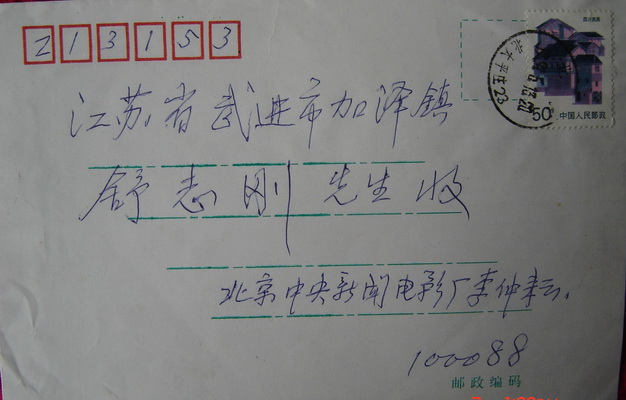 213153
江苏省武进市加泽镇
舒志刚 先生收
北京中央新闻电影厂李仲耘.
100088
邮政编码
50分
中国人民邮政